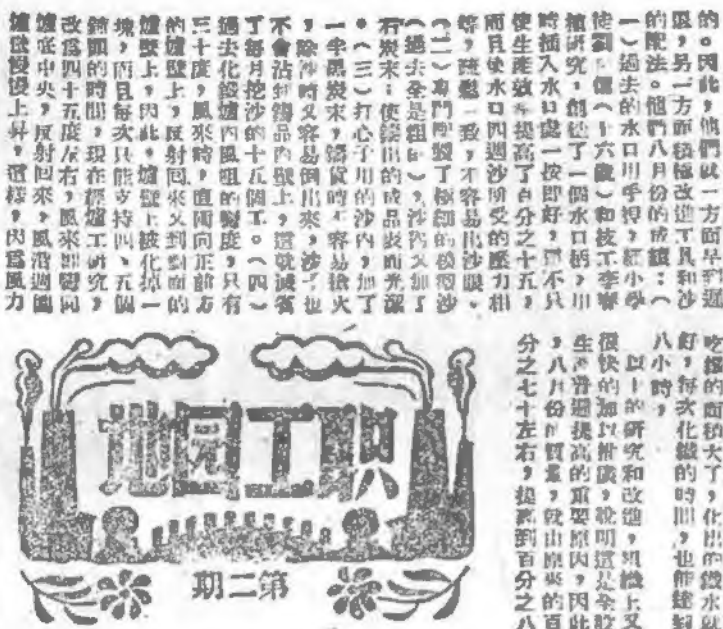 的。因此，他們就一方面早到遲
退，另一方面積極改進工具和沙
的配法。他們八月份的成績：（
一）過去的水口用手捏，經小學
徒劉　儒（十六歲）和技工李春
植研究，創造了一個水口柄，用
時插入水口處一按即好，這不只
使生產效率提高了百分之十五，
而且使水口四週沙所受的壓力相
等，疏鬆一致，不容易出沙眼。
（二）專門配製了極細的模型沙
（過去全是粗的），沙內又加了
石炭末；使鑄出的成品表面光潔
。（三）打心子用的沙內，加了
一半黑炭末，鑄貨時不容易搶火
，除沙時又容易倒出來，沙子也
不會沾到鑄品內壁上，這就減省
了每月挖沙的十五個工。（四）
過去化鐵爐內風咀的斜度，只有
三十度，風來時，直衝向正前方
的爐壁上，反射回來又到對面的
爐壁上，因此，爐壁上被化掉一
塊，而且每次只能支持四、五個
鐘頭的時間，現在經爐工研究，
改爲四十五度左右，風來卽衝向
爐底中央，反射回來，風沿週圍
爐壁慢慢上昇，這樣，因爲風力
吃鐵的面積大了，化出的鐵水就
好，每次化鐵的時間，也能達到
八小時，
以上的研究和改進，組織上又
很快的加以推廣，說明這是全
生產普遍提高的重要原因，因此
，八月份的質量，就由原來的百
分之七十左右，提高到百分之八
職工園地
第二期